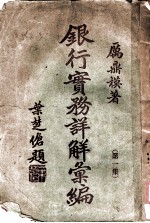 厲鼎模著
銀行實務詳解彙編
(第一集)
葉楚傖題